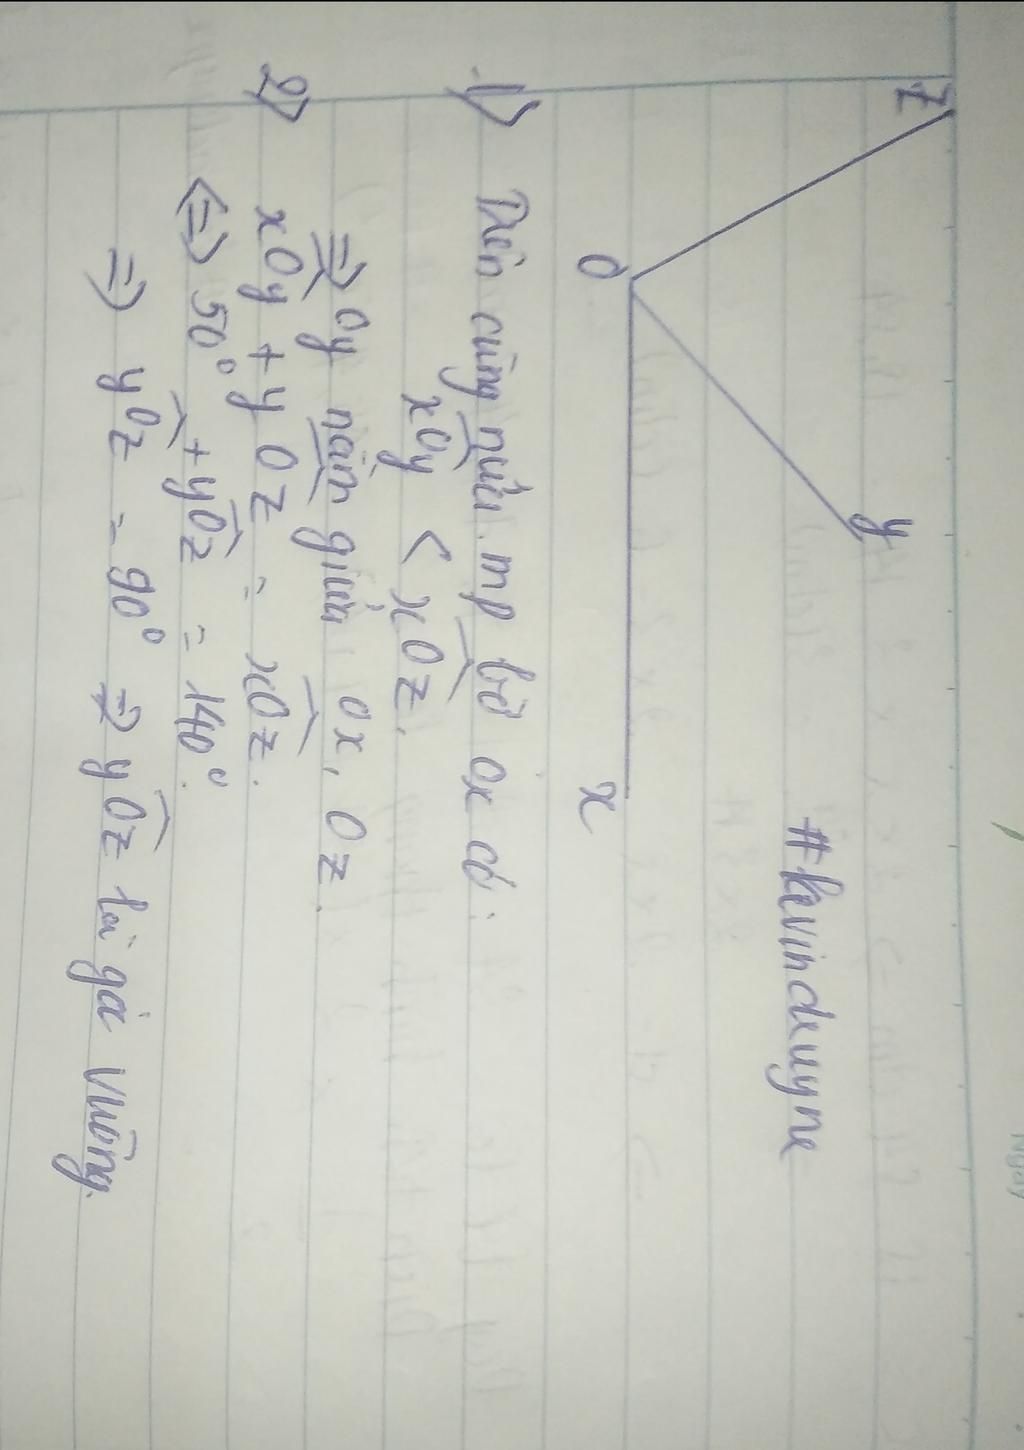 z
y
#kevindeuyne
O
x
1) Trên cùng nửa mp bờ Ox có:
xOy < xOz.
=> Oy nằm giữa Ox, Oz.
2) xOy + yOz = xOz.
<=> 50° + yOz = 140°.
=> yOz = 90° => yOz là gó vuông.
Ngày